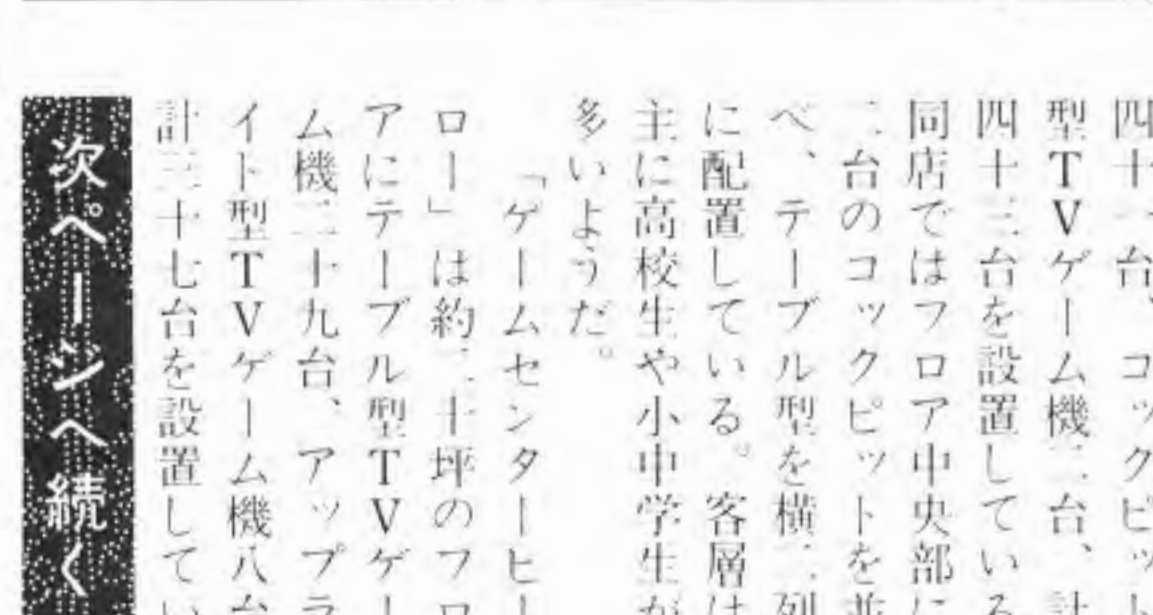 四十一台、コックピット
型TVゲーム機二台、計
四十三台を設置している
同店ではフロア中央部に
二台のコックピットを並
べ、テーブル型を横二列
に配置している。客層は
主に高校生や小中学生が
多いようだ。
「ゲームセンターヒー
ロー」は約二十坪のフロ
アにテーブル型TVゲー
ム機二十九台、アップラ
イト型TVゲーム機八台
計三十七台を設置してい
次ページへ続く